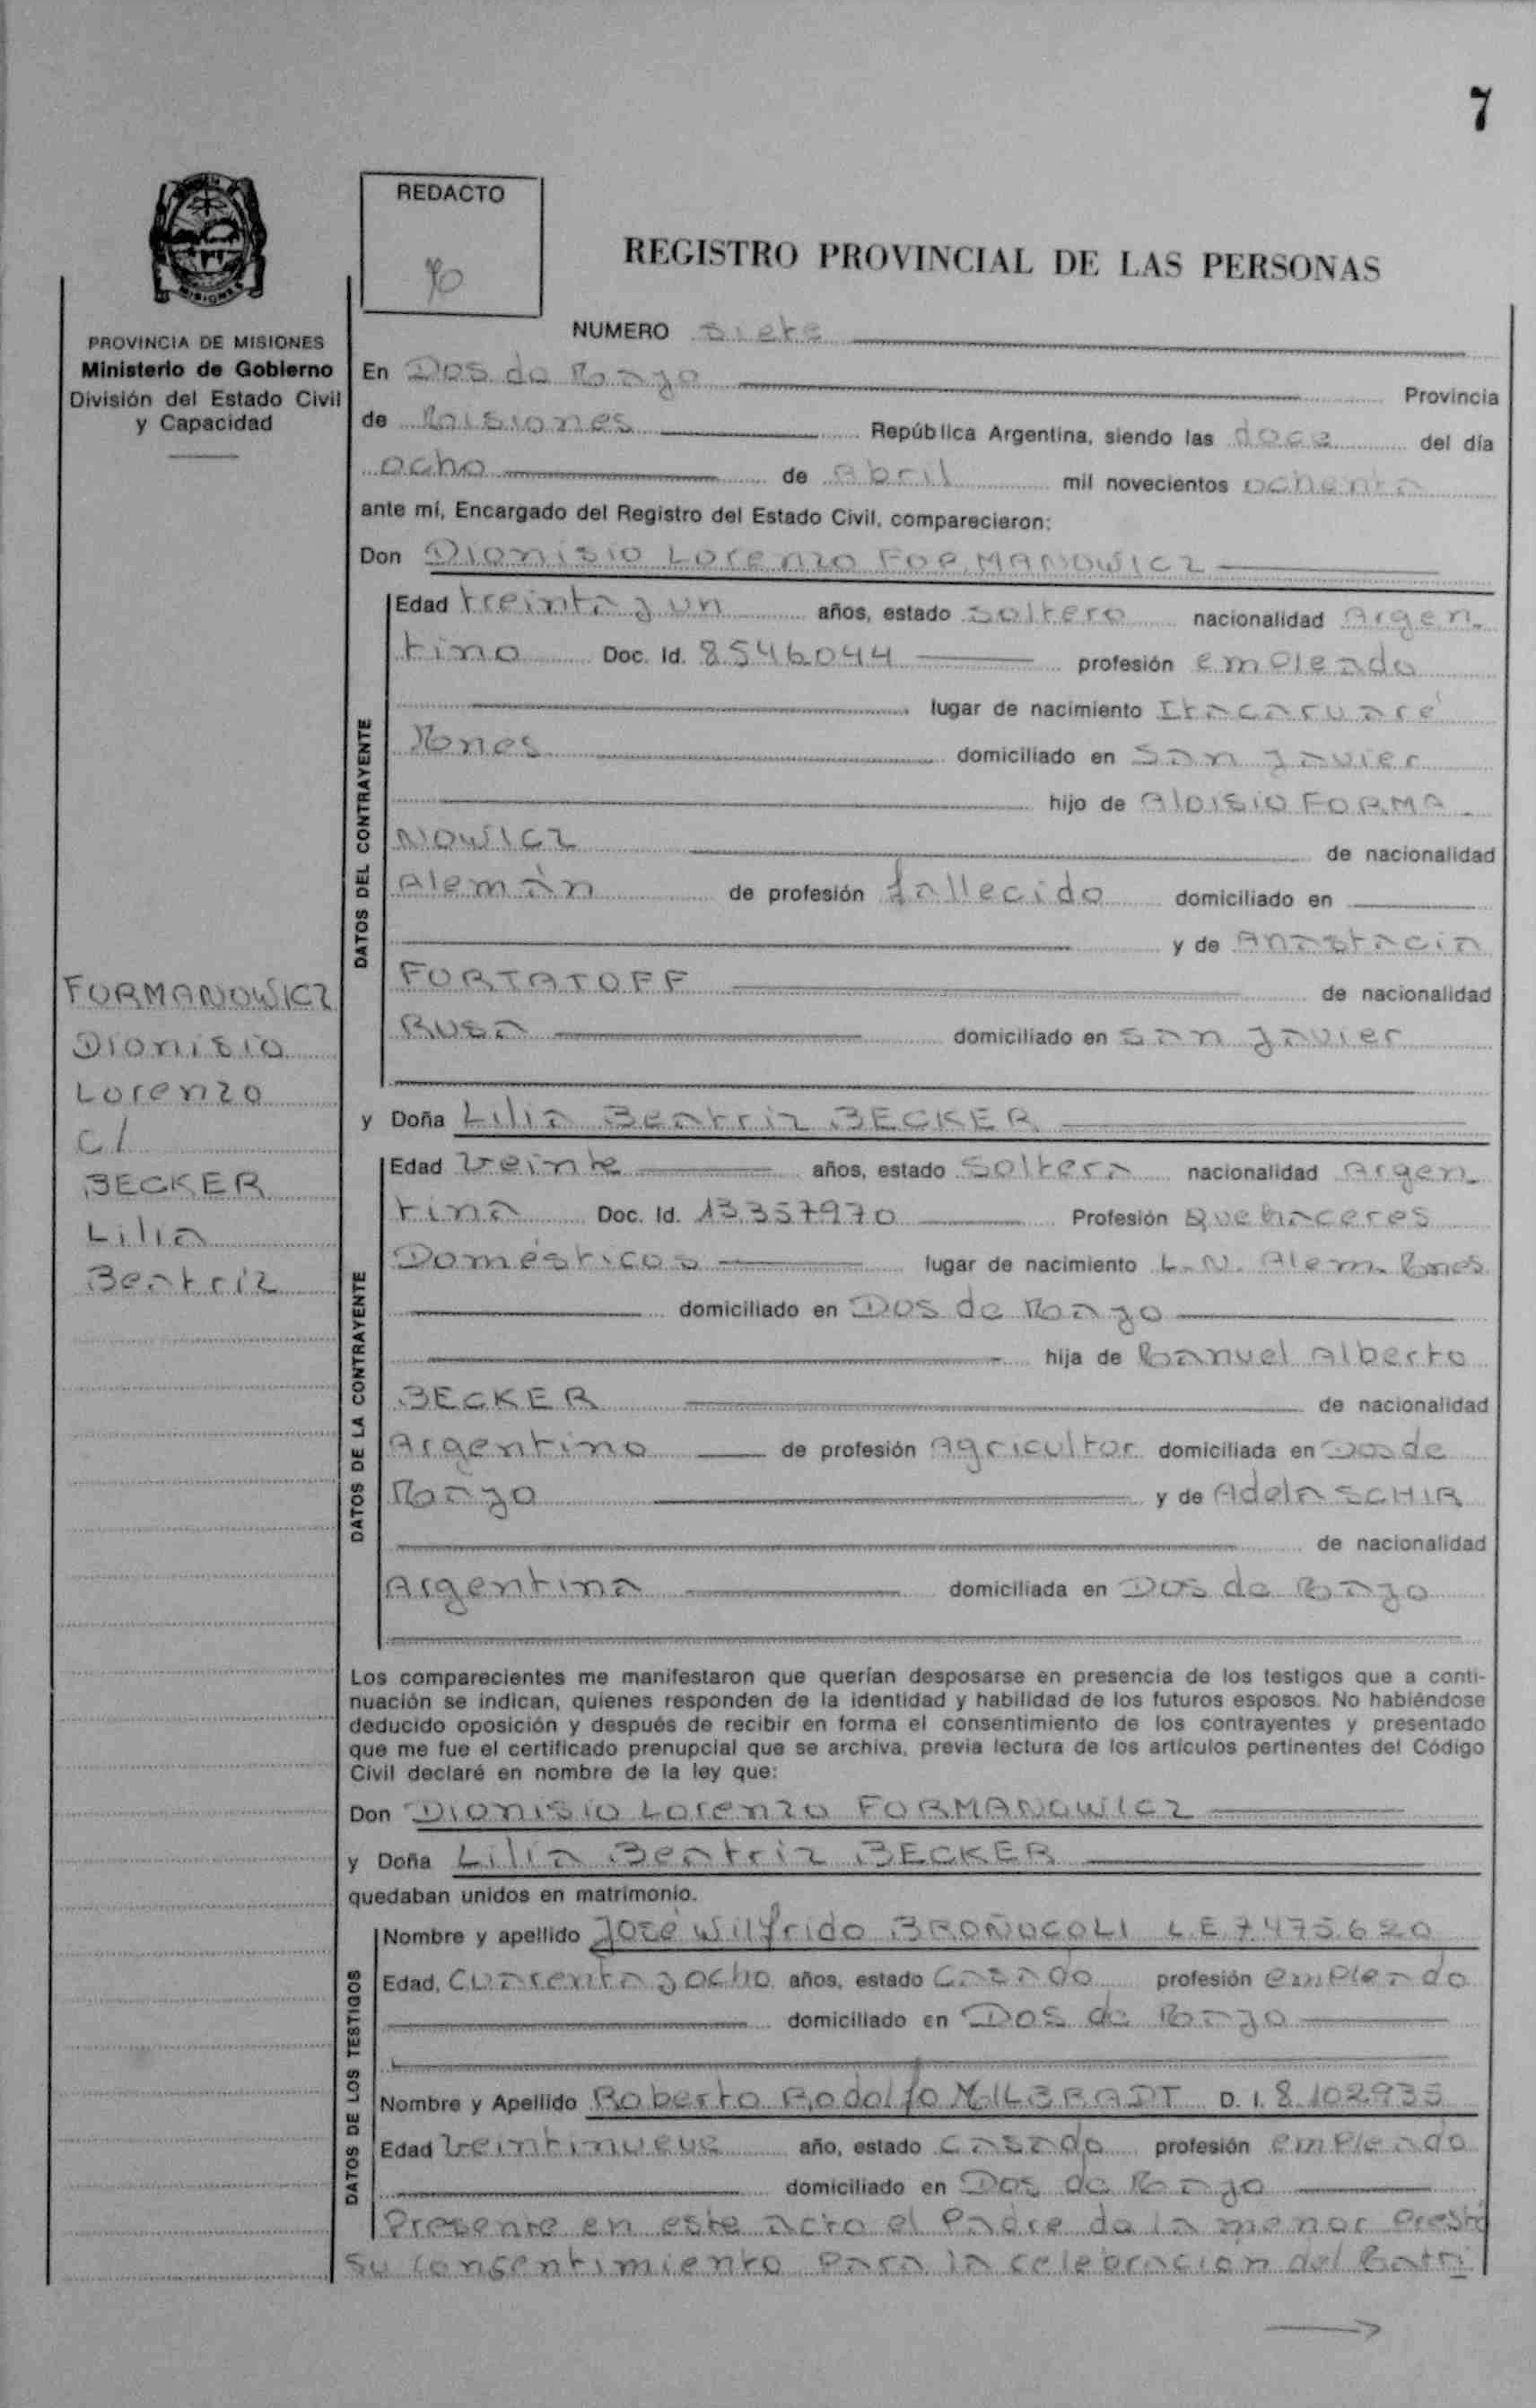 7
REDACTO
REGISTRO PROVINCIAL DE LAS PERSONAS
MISIONES
PROVINCIA DE MISIONES
Ministerio de Gobierno
División del Estado Civil
y Capacidad
NUMERO siete
En Dos de Mayo Provincia
de Misiones República Argentina, siendo las doce del día
ocho de Abril mil novecientos ochenta
ante mí, Encargado del Registro del Estado Civil, comparecieron:
Don Dionisio Lorenzo FORMANOWICZ
DATOS DEL CONTRAYENTE
Edad treinta y un años, estado soltero nacionalidad Argen-
tino Doc. Id. 8546044 profesión empleado
lugar de nacimiento Itacaruaré
Mnes domiciliado en San Javier
hijo de Aloisio FORMA-
NOWICZ de nacionalidad
Alemán de profesión fallecido domiciliado en
y de Anastacia
FORTATOFF de nacionalidad
Rusa domiciliado en San Javier
FORMANOWICZ
Dionisio
Lorenzo
c/
BECKER
Lilia
Beatriz
y Doña Lilia Beatriz BECKER
DATOS DE LA CONTRAYENTE
Edad veinte años, estado soltera nacionalidad Argen-
tina Doc. Id. 13.357970 Profesión Quehaceres
Domésticos lugar de nacimiento L.N. Alem. Mnes
domiciliado en Dos de Mayo
hija de Manuel Alberto
BECKER de nacionalidad
Argentino de profesión Agricultor domiciliada en Dos de
Mayo y de Adela SCHIR
de nacionalidad
Argentina domiciliada en Dos de Mayo
Los comparecientes me manifestaron que querían desposarse en presencia de los testigos que a conti-
nuación se indican, quienes responden de la identidad y habilidad de los futuros esposos. No habiéndose
deducido oposición y después de recibir en forma el consentimiento de los contrayentes y presentado
que me fue el certificado prenupcial que se archiva, previa lectura de los artículos pertinentes del Código
Civil declaré en nombre de la ley que:
Don Dionisio Lorenzo FORMANOWICZ
y Doña Lilia Beatriz BECKER
quedaban unidos en matrimonio.
DATOS DE LOS TESTIGOS
Nombre y apellido José Wilfrido BROÑUCOLI L.E 7.475.620
Edad, cuarenta y ocho años, estado Casado profesión empleado
domiciliado en Dos de Mayo
Nombre y Apellido Roberto Rodolfo MILBRADT D. I. 8.102935
Edad veintinueve año, estado casado profesión empleado
domiciliado en Dos de Mayo
Presente en este acto el Padre de la menor prestó
su consentimiento para la celebración del Matri